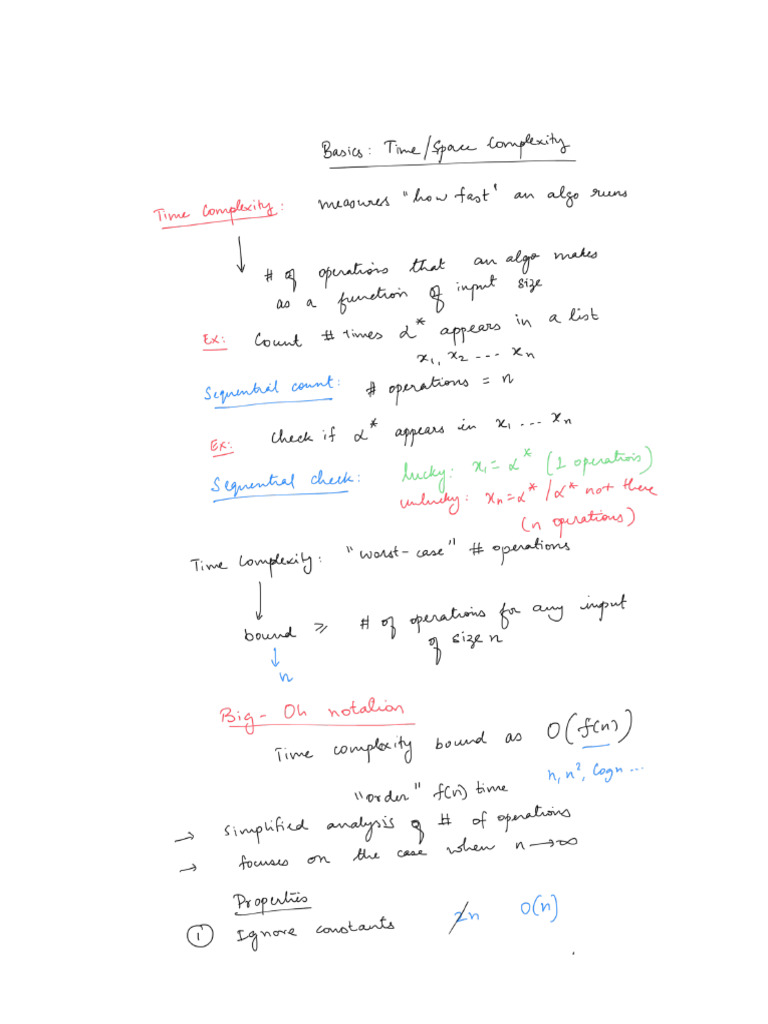 Basics: Time/Space Complexity
Time Complexity: measures "how fast" an algo runs
↓
# of operations that an algo makes
as a function of input size
Ex: Count # times α* appears in a list
x₁, x₂ --- xₙ
Sequential count: # operations = n
Ex: Check if α* appears in x₁ ... xₙ
Sequential check: lucky: x₁ = α* (1 operations)
unlucky: xₙ = α* / α* not there
(n operations)
Time Complexity: "worst-case" # operations
↓
bound ≥ # of operations for any input
of size n
↓
n
Big-Oh notation
Time complexity bound as O(f(n))
n, n², logn ...
"order" f(n) time
→ simplified analysis of # of operations
→ focuses on the case when n → ∞
Properties
① Ignore constants 2n O(n)